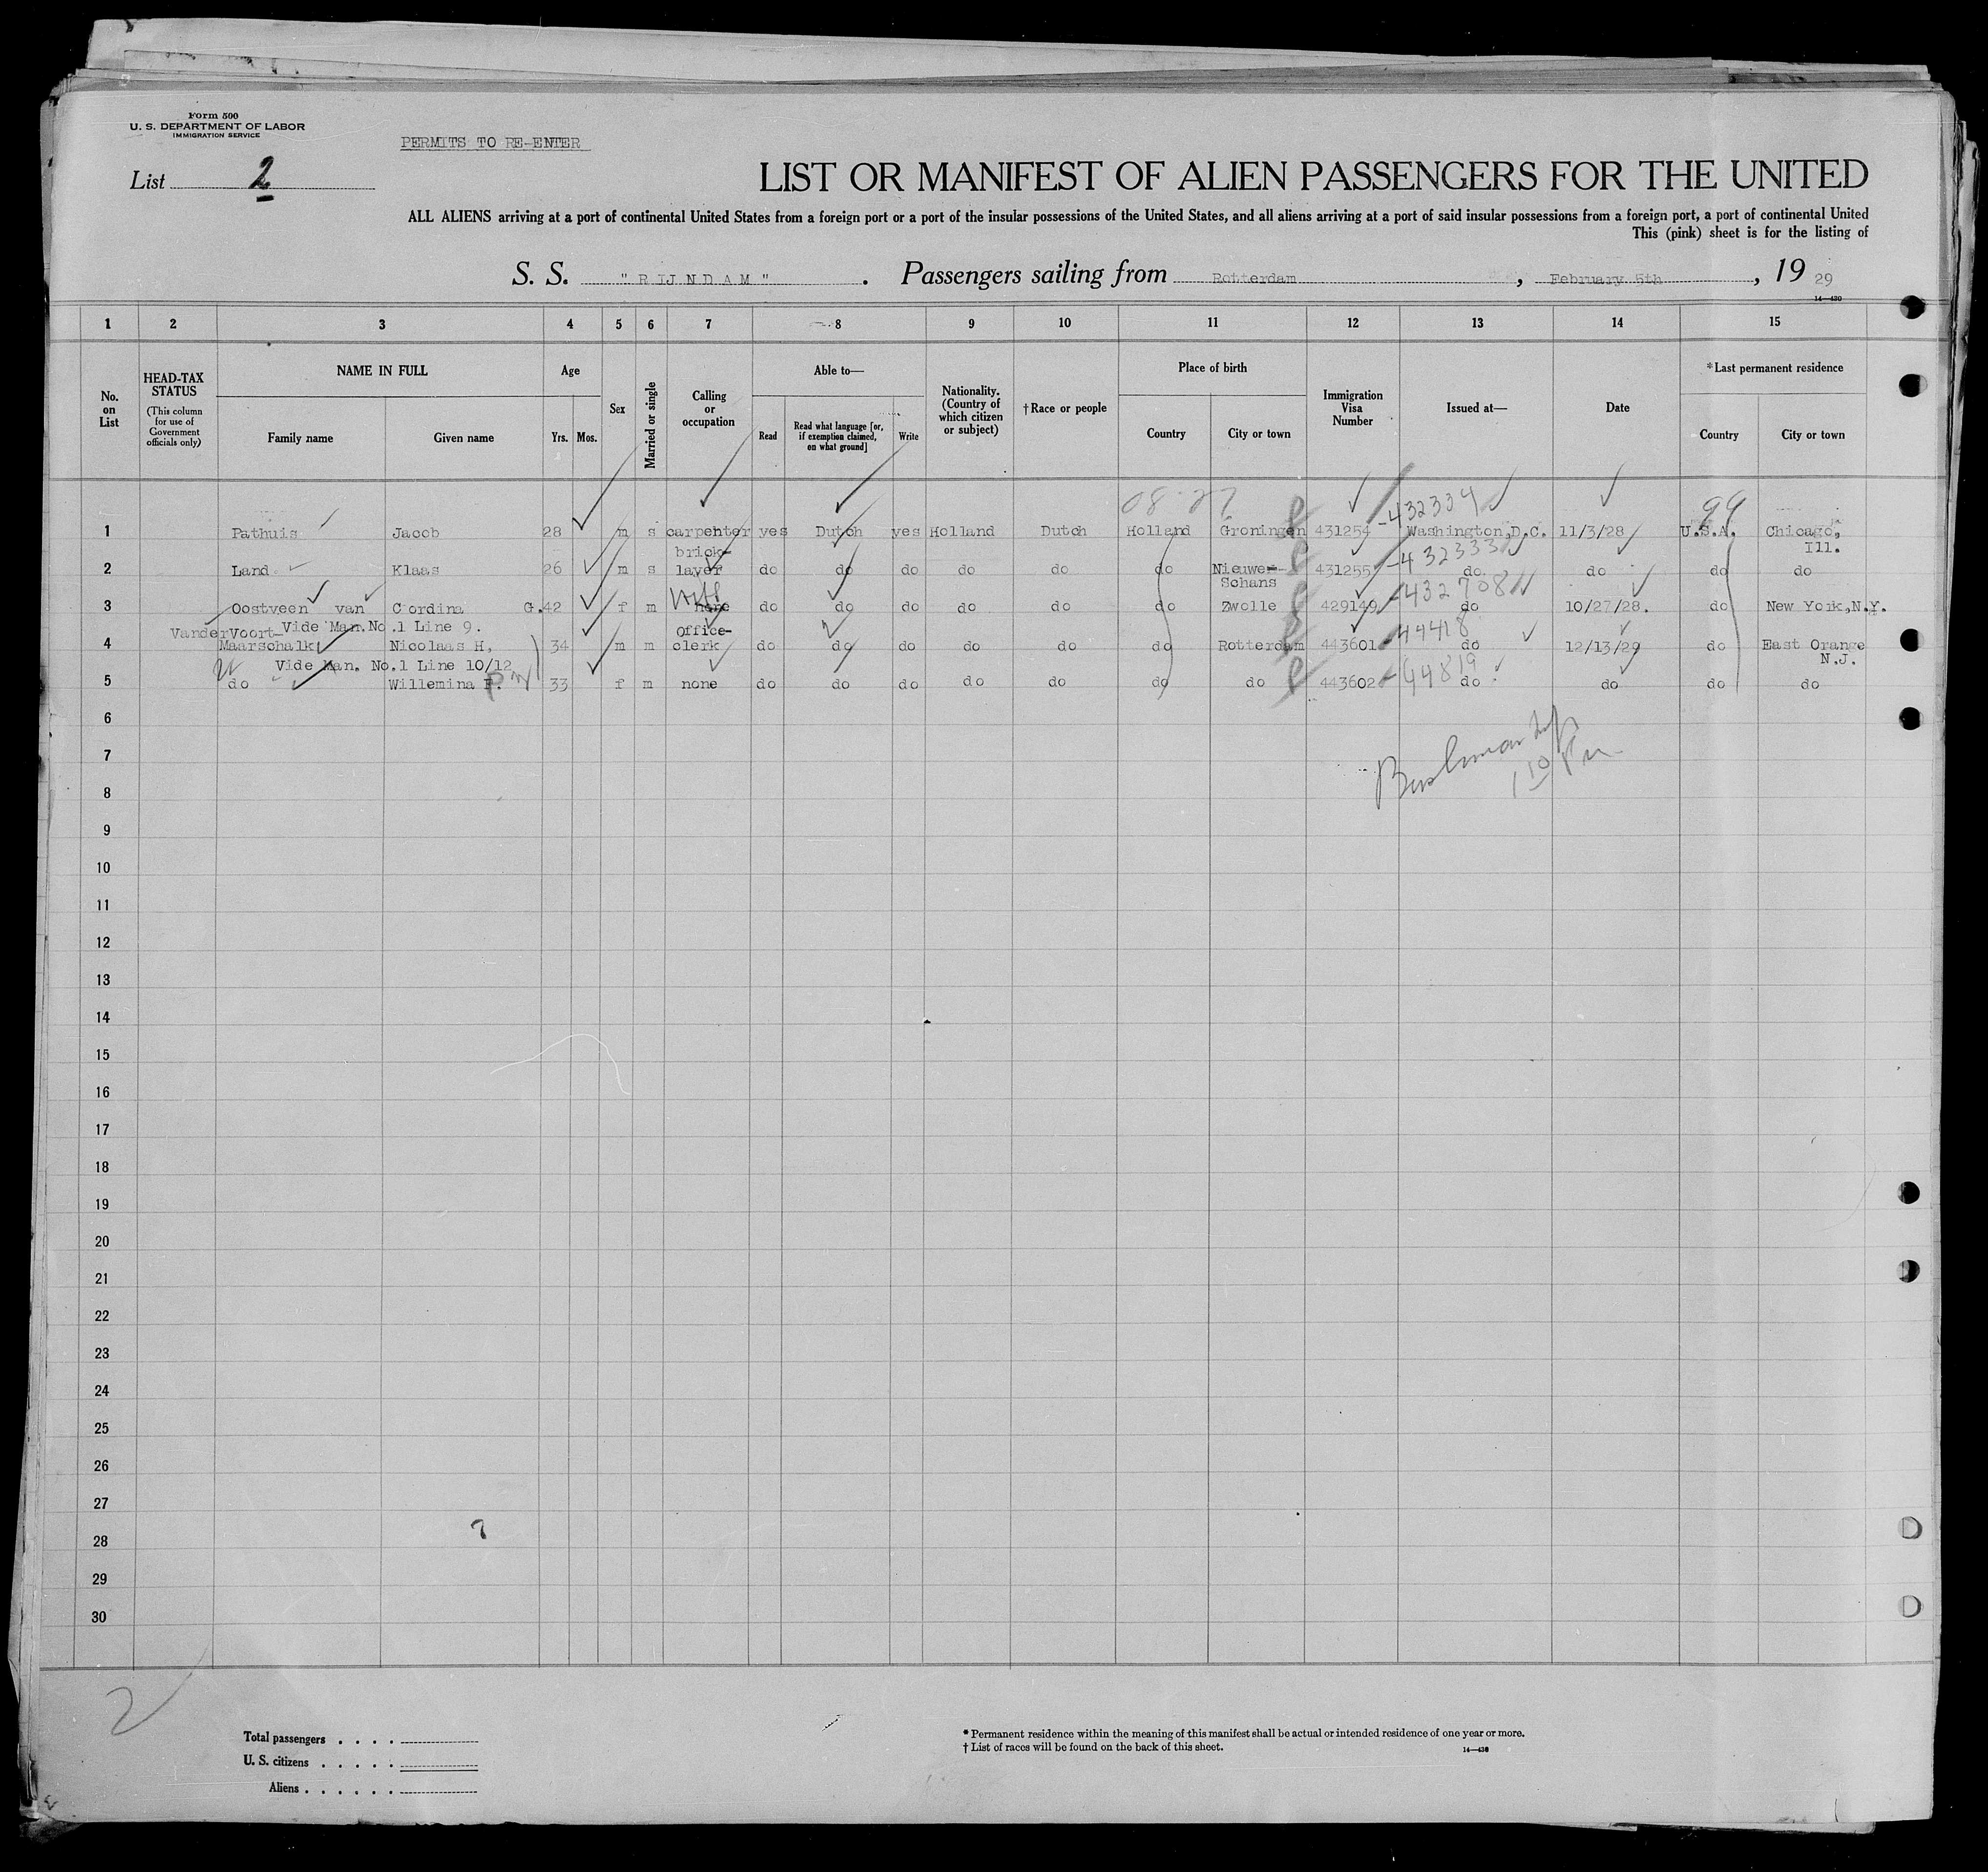 Form 500
U. S. DEPARTMENT OF LABOR
IMMIGRATION SERVICE
PERMITS TO RE-ENTER
List 2
LIST OR MANIFEST OF ALIEN PASSENGERS FOR THE UNITED
ALL ALIENS arriving at a port of continental United States from a foreign port or a port of the insular possessions of the United States, and all aliens arriving at a port of said insular possessions from a foreign port, a port of continental United
This (pink) sheet is for the listing of
S. S. "RIJNDAM". Passengers sailing from Rotterdam, February 5th, 19 29
14-430
1 2 3 4 5 6 7 8 9 10 11 12 13 14 15
No. on List
HEAD-TAX STATUS (This column for use of Government officials only)
NAME IN FULL
Family name Given name
Age
Yrs. Mos.
Sex
Married or single
Calling or occupation
Able to—
Read Read what language [or, if exemption claimed, on what ground] Write
Nationality. (Country of which citizen or subject)
†Race or people
Place of birth
Country City or town
Immigration Visa Number
Issued at—
Date
*Last permanent residence
Country City or town
08-27 -432334 99
1 Pathuis Jacob 28 m s carpenter yes Dutch yes Holland Dutch Holland Groningen 431254 Washington,D.C. 11/3/28 U.S.A. Chicago, Ill.
-432333
2 Land Klaas 26 m s brick-layer do do do do do do Nieuwe-Schans 431255 do do do do
-432708
3 Oostveen van Cordina G. 42 f m none do do do do do do Zwolle 429149 do 10/27/28. do New York,N.Y.
Vide Man.No.1 Line 9.
44418
4 VanderVoort-Maarschalk Nicolaas H, 34 m m Office-clerk do do do do do do Rotterdam 443601 do 12/13/29 do East Orange N.J.
Vide Man. No.1 Line 10/12
44819
5 do Willemina F. 33 f m none do do do do do do do 443602 do do do do
6
7
8
9
10
11
12
13
14
15
16
17
18
19
20
21
22
23
24
25
26
27
28
29
30
2
Total passengers
U. S. citizens
Aliens
* Permanent residence within the meaning of this manifest shall be actual or intended residence of one year or more.
† List of races will be found on the back of this sheet.
14-430